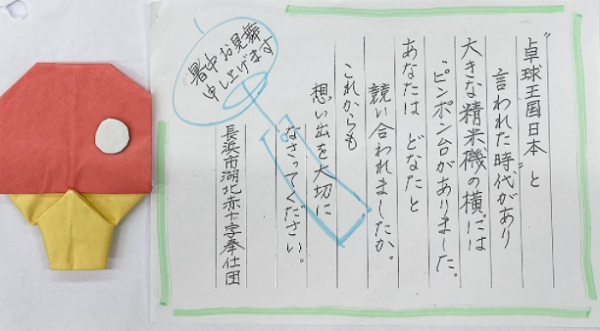 "卓球王国日本"と
言われた時代があり
大きな精米機の横には
ピンポン台がありました。
あなたは どなたと
競い合われましたか。
これからも
想い出を大切に
なさってください。
長浜市湖北赤十字奉仕団
暑中お見舞
申し上げます